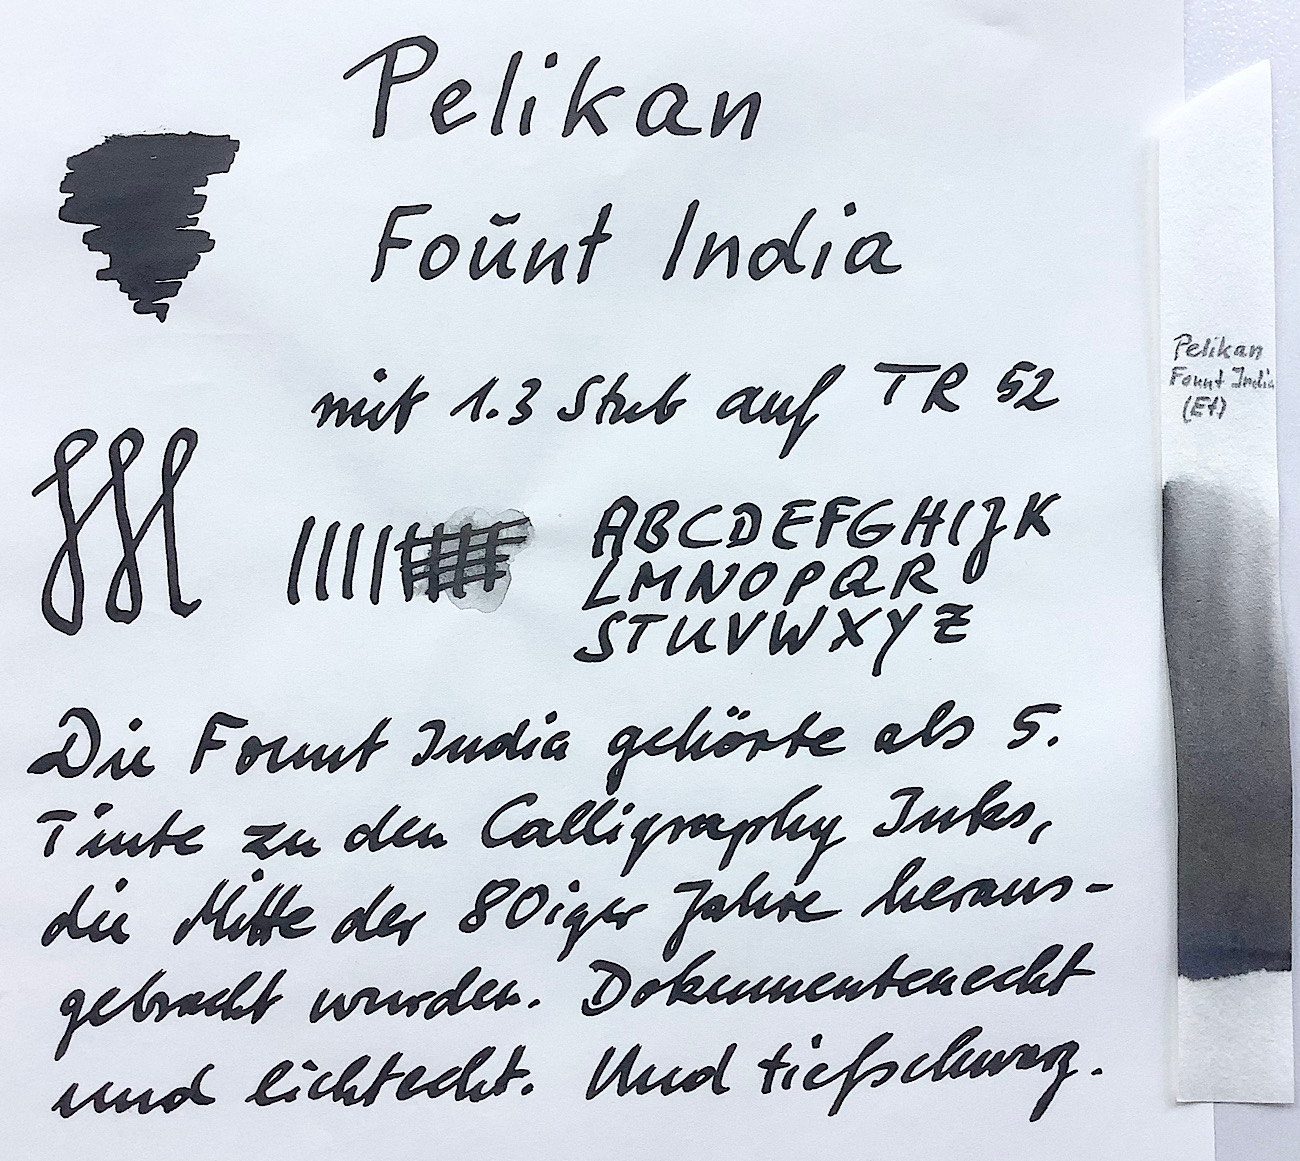 Pelikan
Foŭnt India
mit 1.3 Stub auf TR 52
ABCDEFGHIJK
LMNOPQR
STUVWXYZ
Die Fount India gehörte als 5.
Tinte zu den Calligraphy Inks,
die Mitte der 80iger Jahre heraus-
gebracht wurden. Dokumentenecht
und lichtecht. Und tiefschwarz.
Pelikan
Fount India